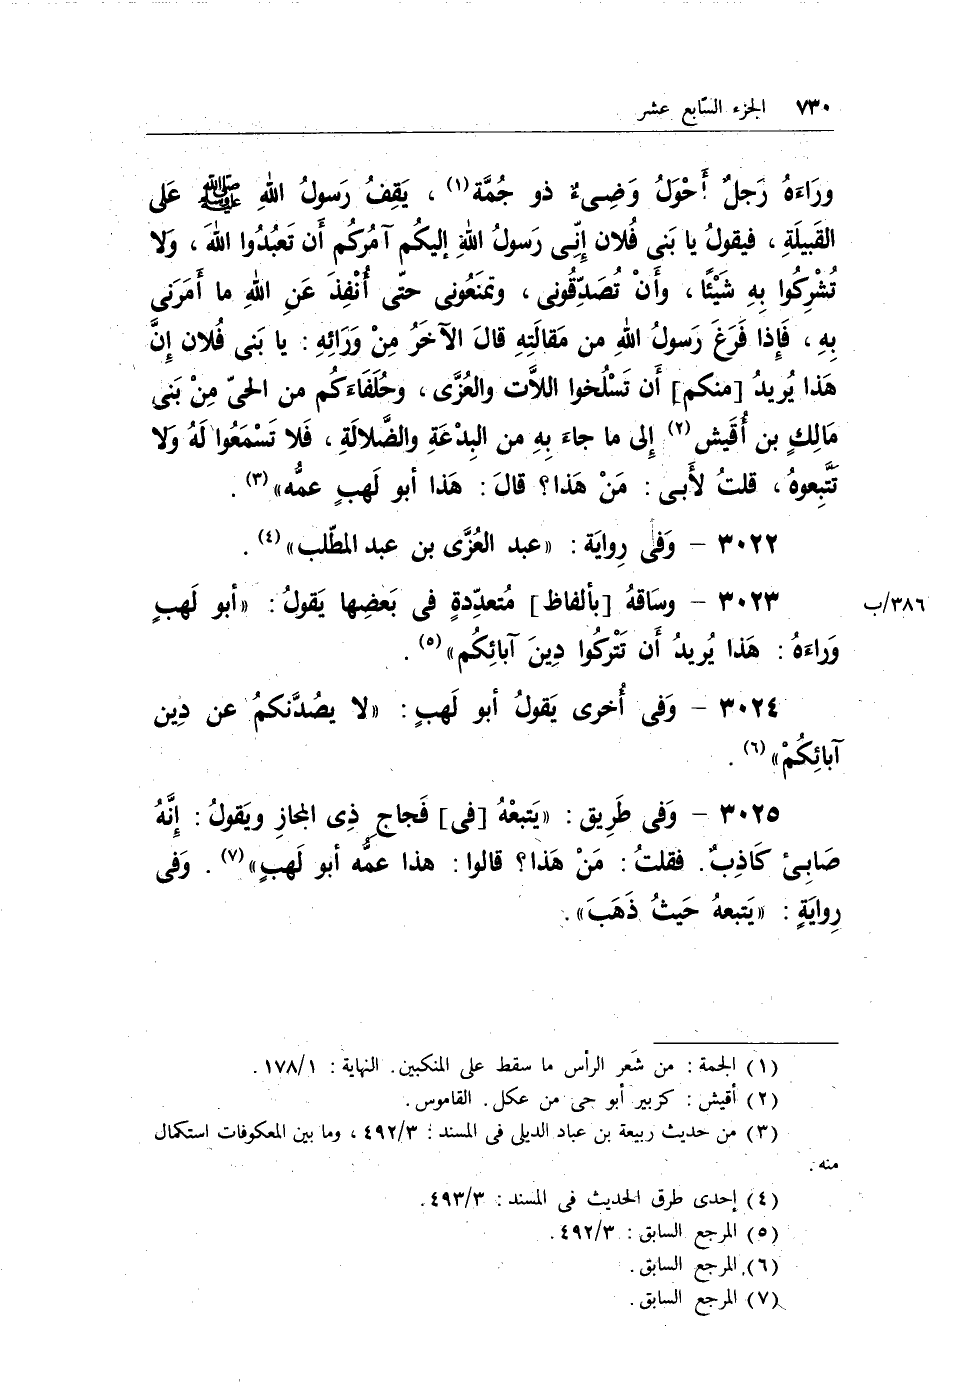 ٧٣٠ الجزء السّابع عشر
ورَاءَهُ رَجلٌ أَحْوَلُ وَضِىءٌ ذو جُمَّة(١) ، يَقِفُ رَسولُ اللهِ ﷺ عَلى
القَبيلَةِ ، فيقولُ يا بَنى فُلان إنِّى رَسولُ اللهِ إليكُم آمُركُم أَن تَعبُدُوا اللهَ ، وَلا
تُشْرِكُوا بِهِ شَيْئًا ، وأَنْ تُصَدِّقُونى ، وتمنَعُونى حتّى أُنْفِذَ عَنِ اللهِ ما أَمَرَنى
بِهِ ، فَإذا فَرَغَ رَسولُ اللهِ من مَقالَتِهِ قالَ الآخَرُ مِنْ وَرَائِهِ : يا بَنى فُلان إنَّ
هَذا يُريدُ [منكم] أَن تَسْلُخوا اللاَّت والعُزَّى ، وحُلَفَاءَكُم من الحىّ مِنْ بَنى
مَالِكٍ بن أُقَيش(٢) إلى ما جاءَ بِهِ من البِدْعَةِ والضَّلالَةِ ، فَلا تَسْمَعُوا لَهُ وَلا
تَتَّبِعوهُ ، قلتُ لأَبى : مَنْ هَذا؟ قالَ : هَذا أبو لَهبٍ عمُّه»(٣) .
٣٠٢٢ – وَفى رِوايَة : «عبد العُزَّى بن عبد المطّلب»(٤) .
٣٠٢٣ – وسَاقهُ [بألفاظ] مُتعدّدةٍ فى بَعضِها يَقولُ : «أبو لَهبٍ ٣٨٦/ب
وَراءَهُ : هَذا يُريدُ أن تَتْركُوا دِينَ آبائِكُم»(٥) .
٣٠٢٤ – وَفى أُخرى يَقولُ أبو لَهبٍ : «لا يصُدَّنكمُ عن دِين
آبائِكُمْ»(٦) .
٣٠٢٥ – وَفى طَرِيق : «يَتبعْهُ [فى] فَجاجِ ذِى المجازِ ويَقولُ : إنَّهُ
صَابِىٌٔ كَاذِبٌ. فقلتُ : مَنْ هَذا؟ قالوا : هذا عمُّه أبو لَهبٍ»(٧) . وَفى
رِوايَةٍ : «يَتبعهُ حَيثُ ذَهَبَ» .
(١) الجمة : من شَعر الرأس ما سقط على المنكبين. النهاية : ١٧٨/١.
(٢) أقيش : كزبير أبو حى من عكل. القاموس.
(٣) من حديث ربيعة بن عباد الديلى فى المسند : ٤٩٢/٣ ، وما بين المعكوفات استكمال
منه.
(٤) إحدى طرق الحديث فى المسند : ٤٩٣/٣.
(٥) المرجع السابق : ٤٩٢/٣.
(٦) المرجع السابق.
(٧) المرجع السابق.